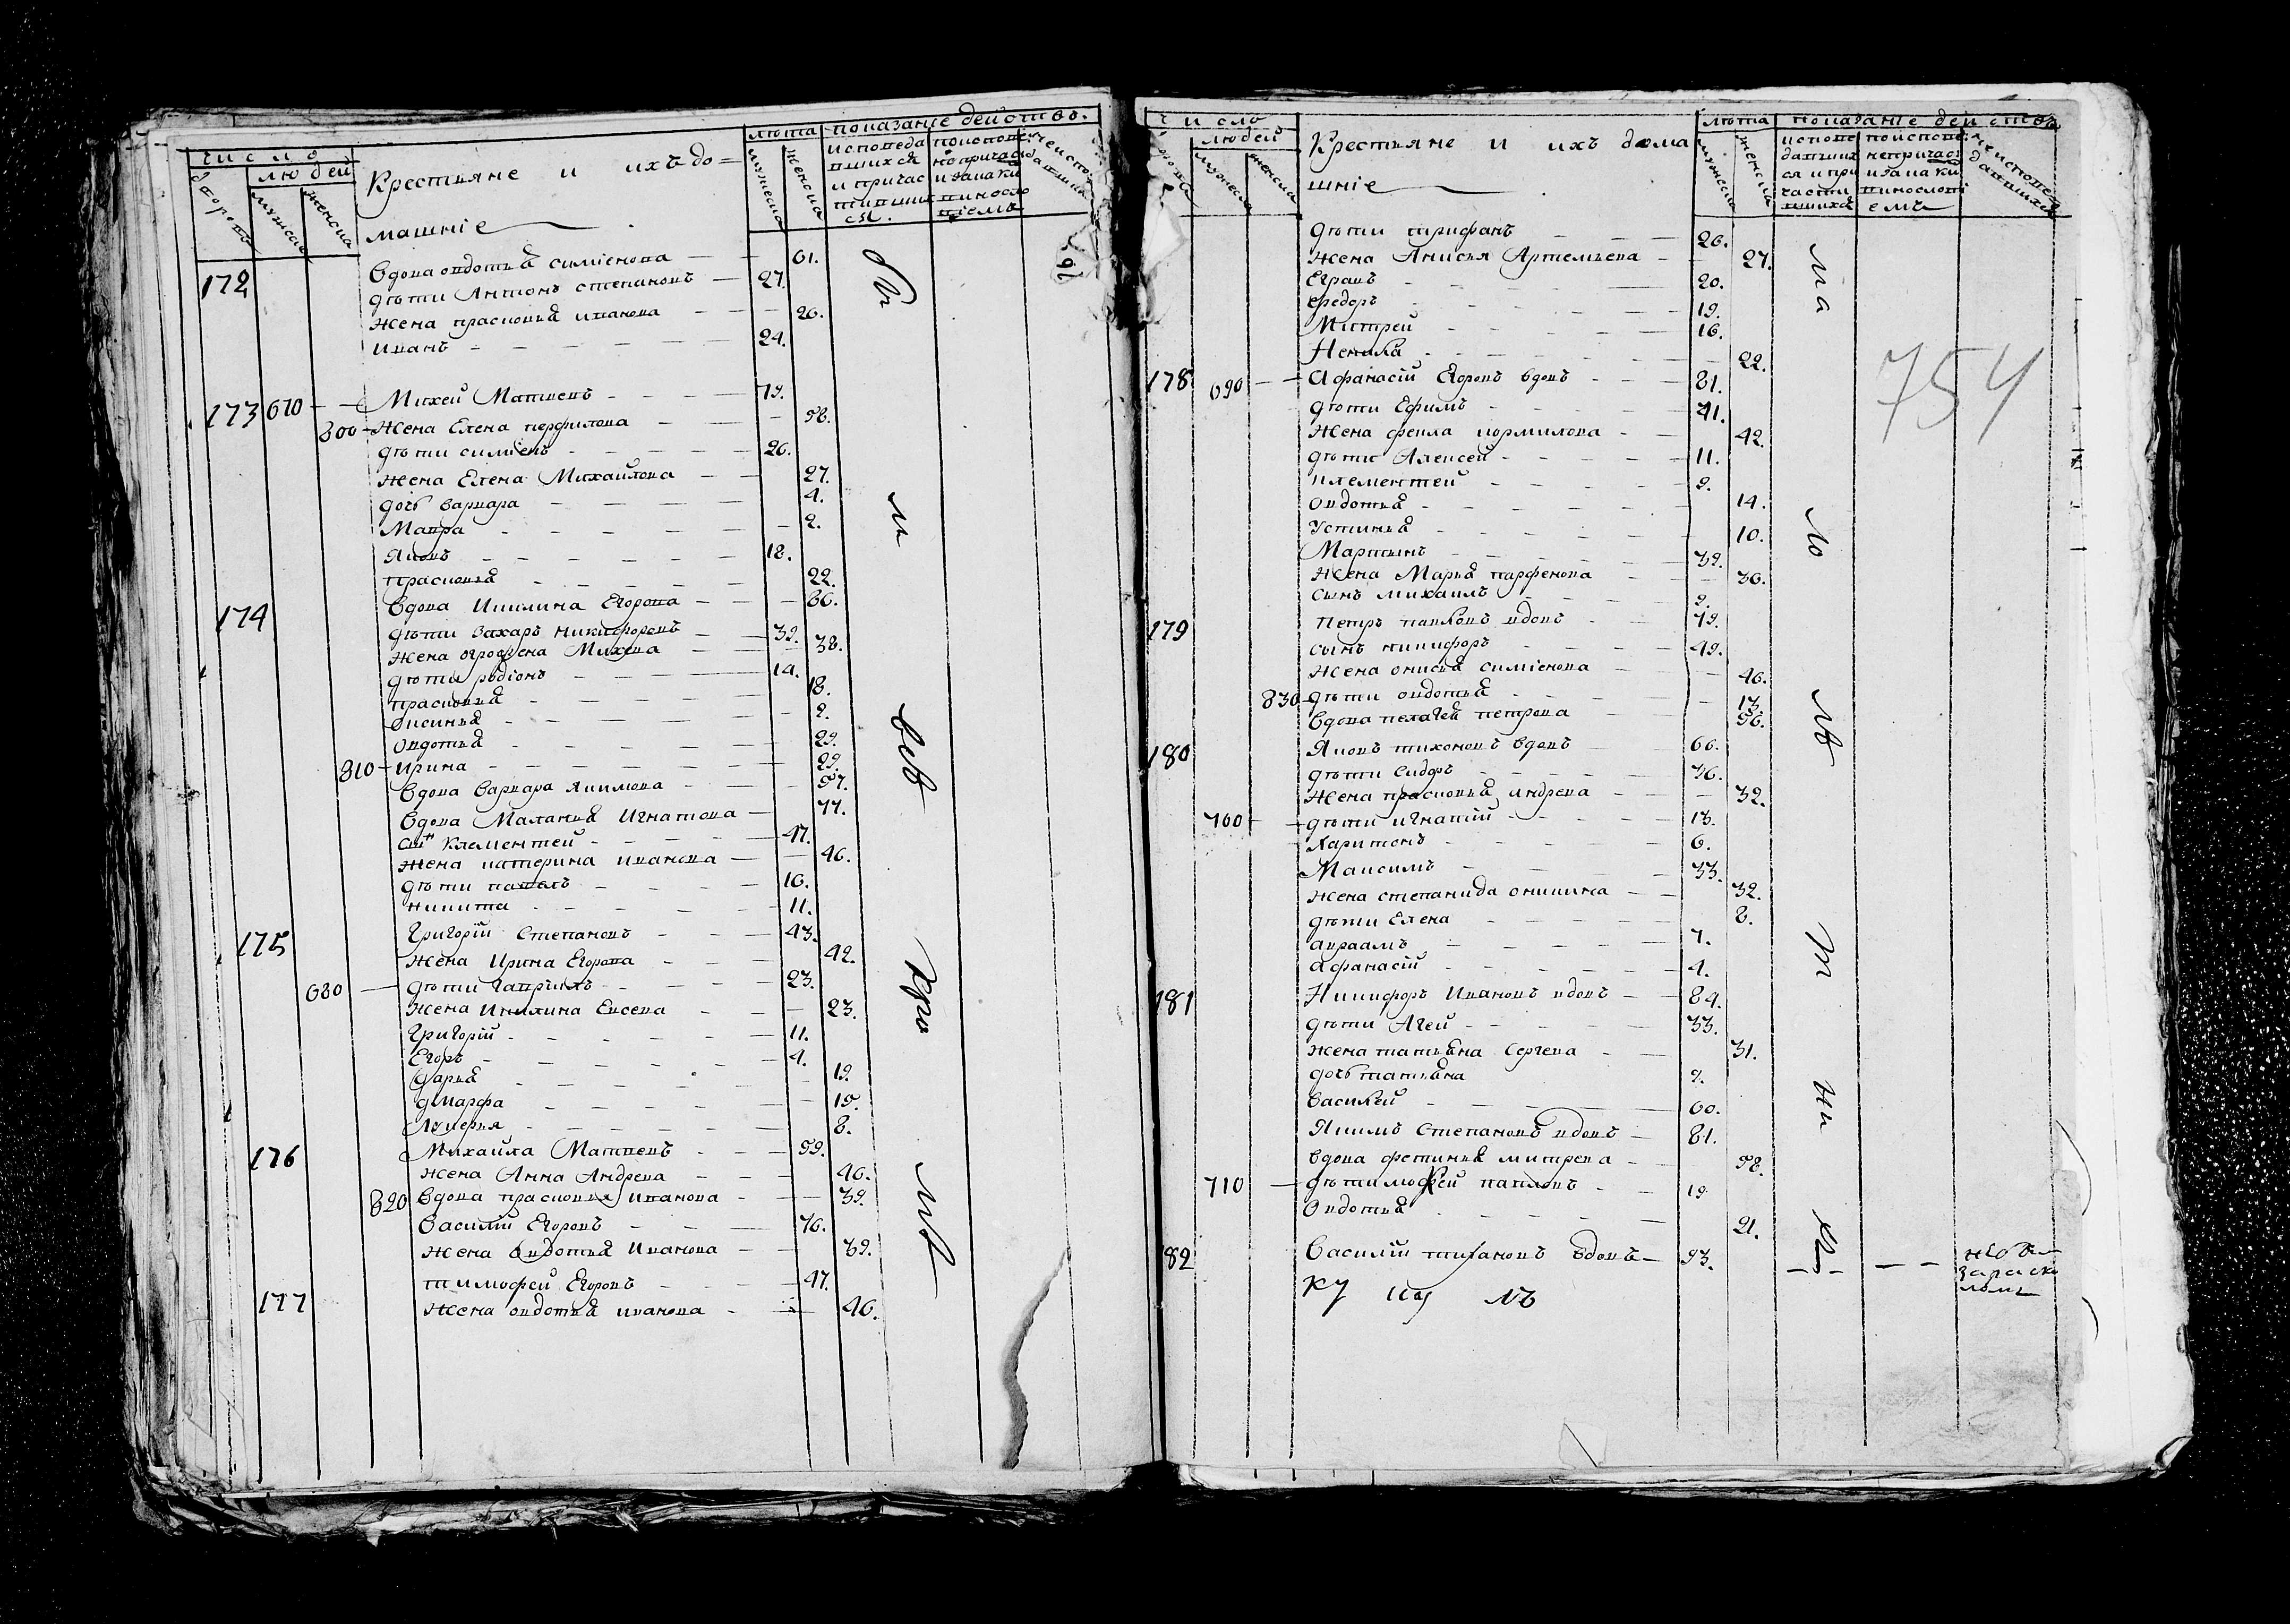 число
людей
дворовъ
мужеска
женска
Крестьяне и ихъ до=
машніе
лѣта
мужеска
женска
показаніе действъ.
исповеда
вшихся
и причас
тивших
ся.
172
Вдова овдотья симіонова — 61.
дѣти Антонъ степановъ — 27.
Жена прасковья иванова — 26.
иванъ — 24.
173 670 Михей Матвеевъ — 79.
800 Жена Елена перфилова — 58.
дѣти симіонъ — 26.
жена Елена Михайлова — 27.
дочь варвара — 4.
Мавра — 2.
Яковъ — 18.
прасковья — 22.
174 Вдова Акилина Егорова — 86.
дѣти Захаръ никифоровъ — 39.
Жена огрофена Михева — 38.
дѣти родіонъ — 14.
прасковья — 18.
Оксинья — 2.
Овдотья — 29.
810 Ирина — 29.
Вдова Варвара Якимова — 57.
Вдова Маланья Игнатова — 77.
сынъ Клементей — 47.
Жена катерина иванова — 46.
дѣти павелъ — 16.
никита — 11.
175 Григорій Степановъ — 43.
Жена Ирина Егорова — 42.
680 дѣти Гаврилъ — 23.
Жена Акилина Евсева — 23.
Григорій — 11.
Егоръ — 4.
Дарья — 19.
Марфа — 15.
Лукерья — 8.
176 Михайла Матвеевъ — 59.
Жена Анна Андрева — 46.
820 Вдова прасковья Иванова — 39.
Василій Егоровъ — 76.
Жена Овдотья Иванова — 39.
177 тимофей Егоровъ — 47.
Жена овдотья иванова — 46.
число
людей
мужеска
женска
Крестьяне и ихъ дома
шніе
лѣта
мужеска
женска
показаніе действъ
испове
давших
ся и при
части
вшихся
754
Дѣти трифанъ — 26.
Жена Анисья Артемьева — 27.
Еграпъ — 20.
Федоръ — 19.
Митрей — 16.
Ненила — 22.
178 690 Афанасій Егоровъ вдовъ — 81.
дѣти Ефимъ — 41.
Жена фекла кормилова — 42.
дѣти Алексей — 11.
Клементей — 9.
Овдотья — 14.
Устинья — 10.
Мартынъ — 39.
Жена Марья парфенова — 36.
сынъ михаилъ — 9.
179 Петръ павловъ вдовъ — 79.
сынъ никифоръ — 49.
Жена онисья симіонова — 46.
830 дѣти овдотья — 13.
Вдова пелагея петрова — 56.
180 Яковъ тихоновъ вдовъ — 66.
дѣти Сидоръ — 36.
Жена прасковья андрева — 32.
700 дѣти игнатій — 13.
Харитонъ — 6.
Максимъ — 33.
Жена степанида оникина — 32.
дѣти Елена — 8.
авраамъ — 7.
Афанасій — 4.
181 Никифоръ Ивановъ вдовъ — 84.
дѣти Агей — 33.
Жена татьяна Сергева — 31.
дочь татьяна — 9.
Василей — 60.
Якимъ Степановъ вдовъ — 81.
Вдова фетинья митрева — 58.
710 дѣти мофей павловъ — 19.
Овдотья — 21.
82 Василій тихановъ вдовъ — 93.
не бы
за раско
ломъ